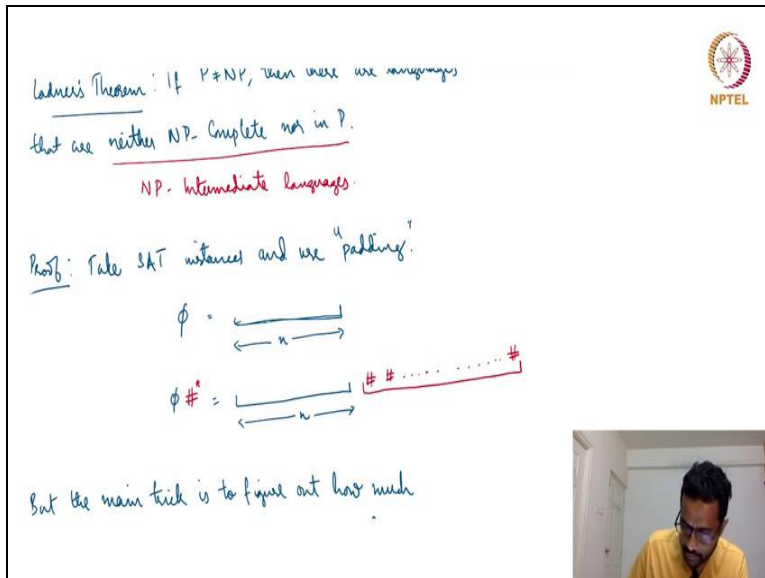 Ladner's Theorem: If P≠NP, then there are languages
NPTEL
that are neither NP-Complete nor in P.
NP-Intermediate languages.
Proof: Take SAT instances and use "padding".
ϕ =
n
ϕ #* = # # ... ...... #
n
But the main trick is to figure out how much